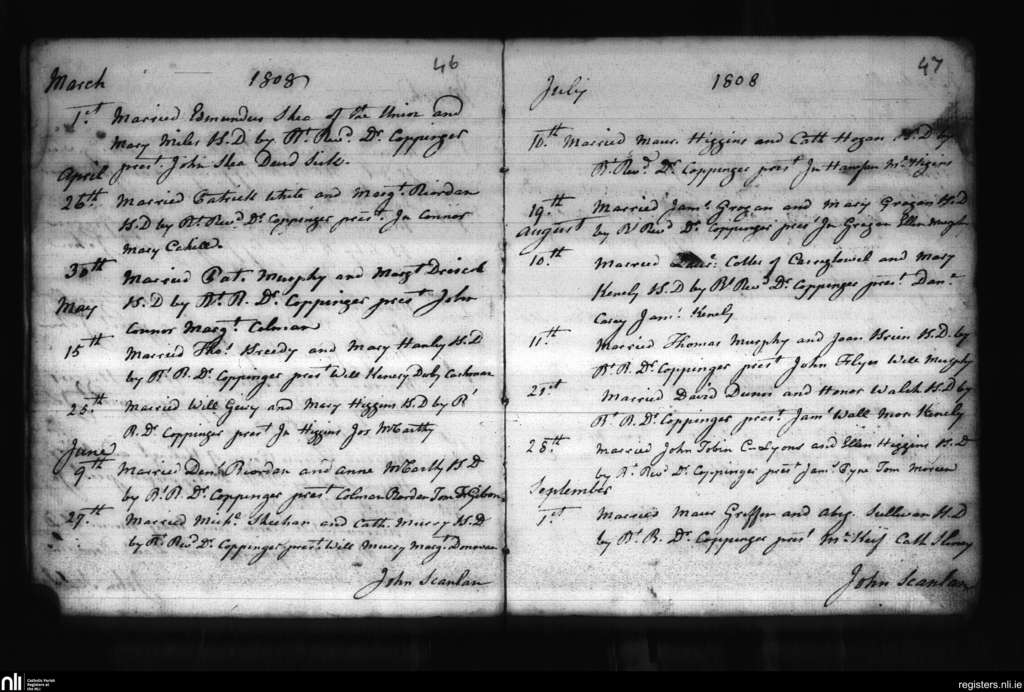 46
March 1808
1st Married Edmundus Shea of the Union and
Mary Miles H.D by Rt Revd Dr Coppinger
prest John Shea Davd Suk.
April
26th Married Patrick White and Margt Riordan
H.D by Rt Revd Dr Coppinger prest Jn Connor
Mary Cahill
30th Married Pat. Murphy and Margt Driscol
H.D by Rt R. Dr Coppinger prest John
Connor Margt Colman
May
15th Married Thos Breedy and Mary Hanly H.D
by Rt R. Dr Coppinger prest Will Henesy Cashman
25th Married Will Geary and Mary Higgins H.D by Rt
R. Dr Coppinger prest Jn Higgins Jos McCarthy
June
9th Married Denl Riordan and Anne McCarthy H.D
by Rt R. Dr Coppinger prest Colman Riordan Tom FzGibbon
27th Married Michl Sheehan and Cath. Murry H.D
by Rt Revd Dr Coppinger prest Will Murry Margt Donovan
John Scanlan
47
July 1808
10th Married Maur. Higgins and Cath Hogan H.D by
Rt Revd Dr Coppinger prest Jn Mr Higins
19th Married Jams Grogan and Mary Grogan H.D
by Rt Revd Dr Coppinger prest Jn Grogan Ellen
August
10th Married Cotter of and Mary
Kenely H.D by Rt Revd Dr Coppinger prest Danl
Casey Jams Kenely
11th Married Thomas Murphy and Joan Brien H.D. by
Rt R. Dr Coppinger prest John Will Murphy
21st Married David and Honor Walsh H.D by
Rt R. Dr Coppinger prest Jams Wall Mor Kenely
28th Married John Tobin C-Lyons and Ellen Higgins H.D
by Rt Revd Dr Coppinger prest Jams Tom
September
1st Married Maur Griffin and Abig. Sullivan H.D
by Rt R. Dr Coppinger prest Cath
John Scanlan
nli Catholic Parish
Registers at
the NLI
registers.nli.ie